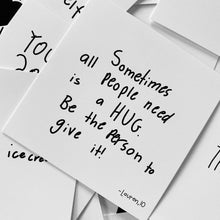 Sometimes
all People need
is a HUG.
Be the Person to
give it!
-Lauren, 10
YOU
icecre